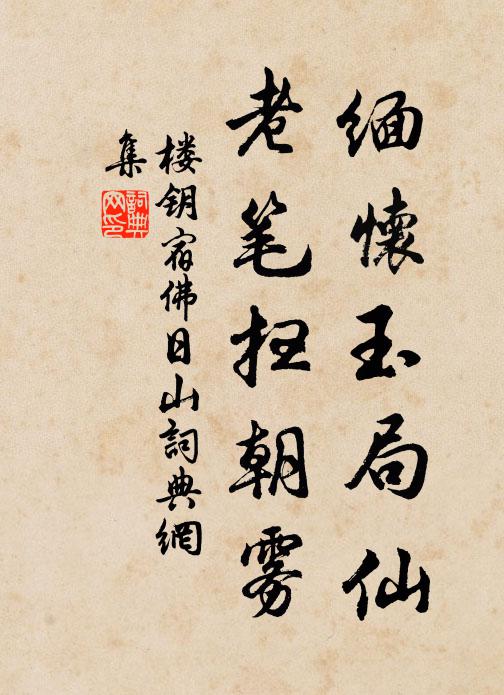 缅懷玉局仙
老笔扫朝雾
楼钥宿佛日山詞典網
集
詞典
网印